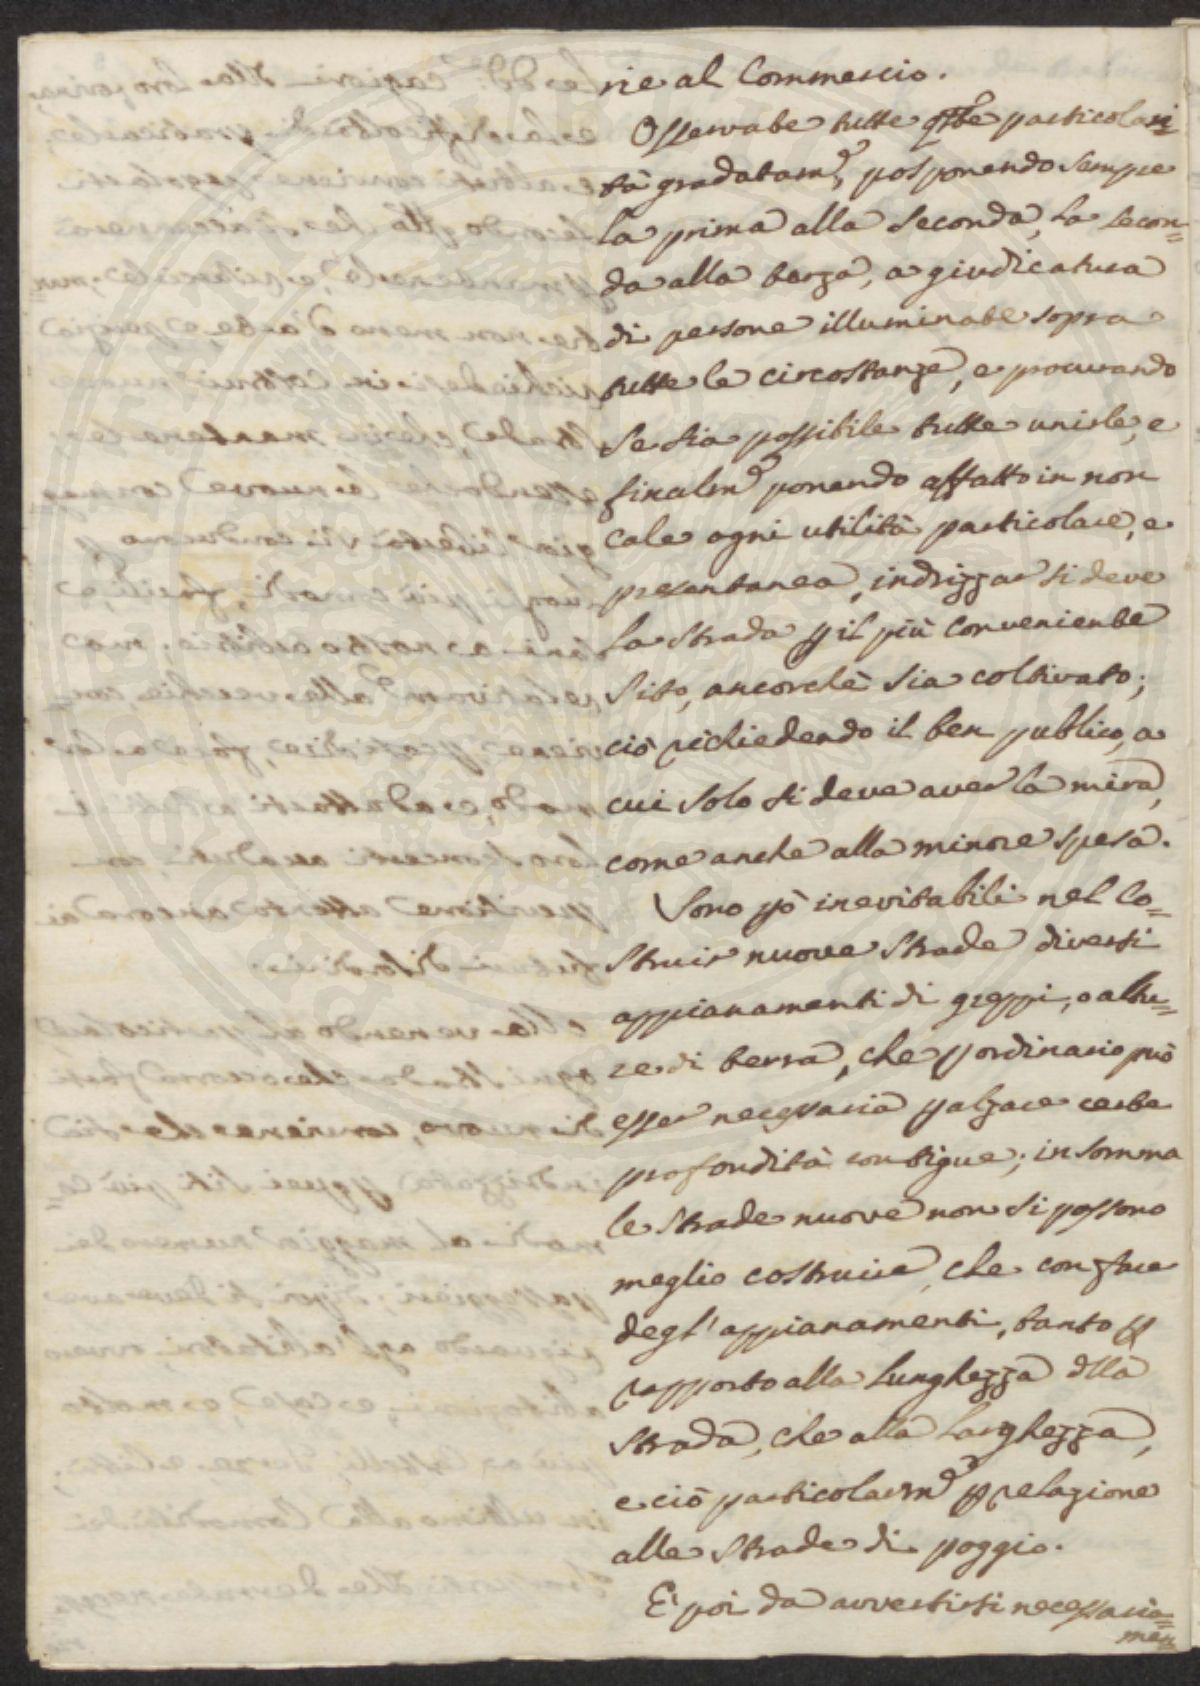 rie al Commercio.
Osservate tutte qste particolari=
tà gradatam.e, posponendo sempre
la prima alla seconda, la secon=
da alla terza, a giudicatura
di persone illuminate sopra
tutte le circostanze, e procurando
se sia possibile tutte unirle, e
finalm.e ponendo affatto in non
cale ogni utilità particolare, e
presentanea, indrizzar si deve
la strada p il più conveniente
sito, ancorchè sia coltivato;
ciò richiedendo il ben publico, a
cui solo si deve aver la mira,
come anche alla minore spesa.
Sono pò inevitabili nel co=
struir nuove strade diversi
appianamenti di greppi, o altu=
re di terra, che p ordinario può
esser necessaria p alzare certe
profondità contigue; in somma
le strade nuove non si possono
meglio costruire, che con fare
degl' appianamenti, tanto p
rapporto alla lunghezza dlla
strada, che alla larghezza,
e ciò particolarm.e p relazione
alle strade di poggio.
E' poi da avvertirsi necessaria=
men=